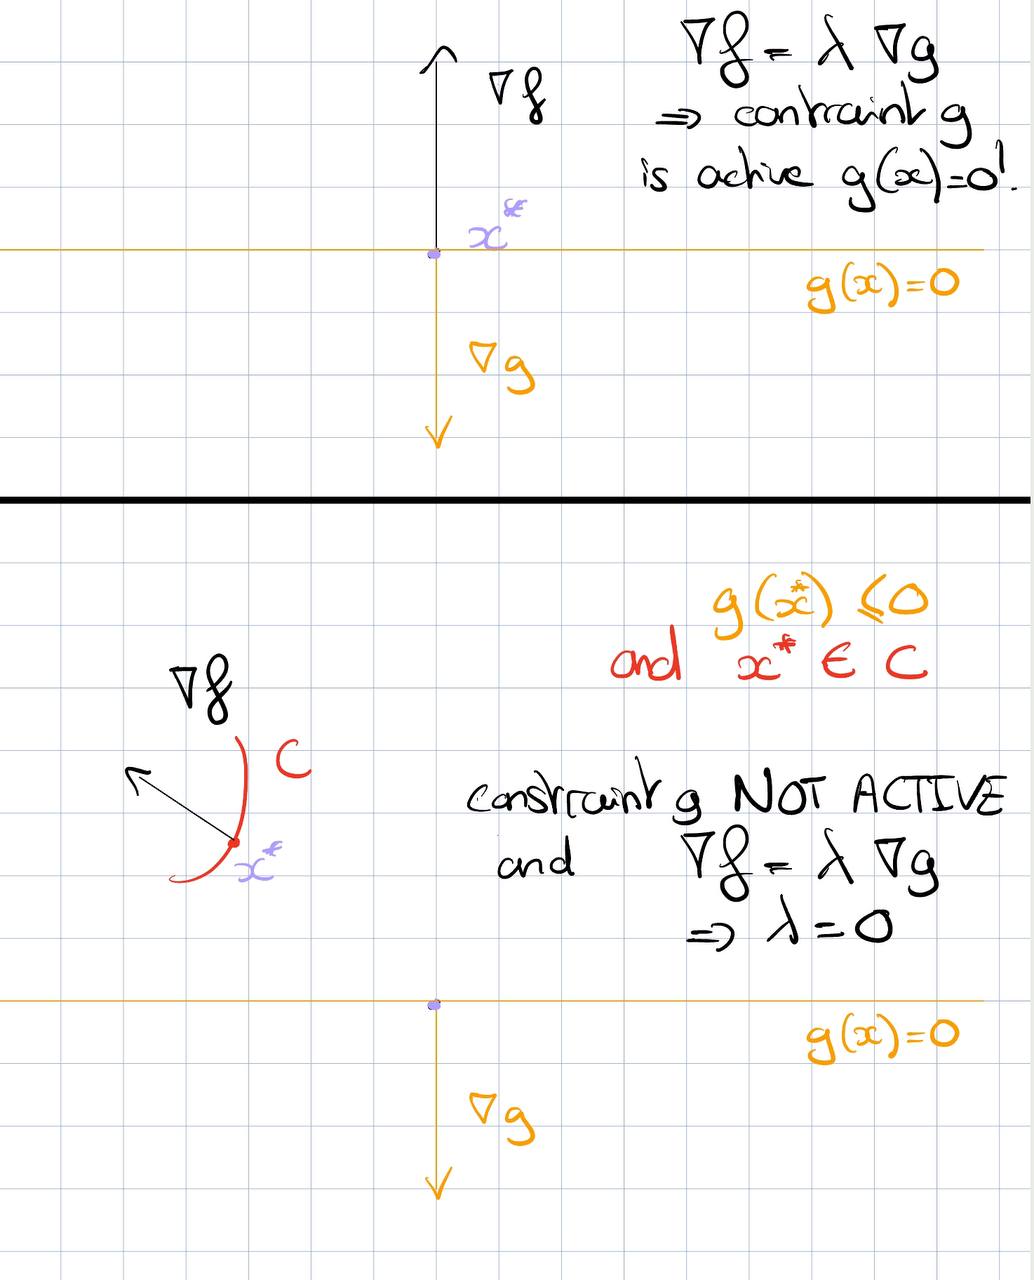 ∇f = λ ∇g
∇f
⇒ contraint g
is active g(x)=0!.
x*
g(x)=0
∇g
g(x*) ≤0
and x* ∈ C
∇f
C
constraint g NOT ACTIVE
and ∇f = λ ∇g
x*
⇒ λ = 0
g(x)=0
∇g